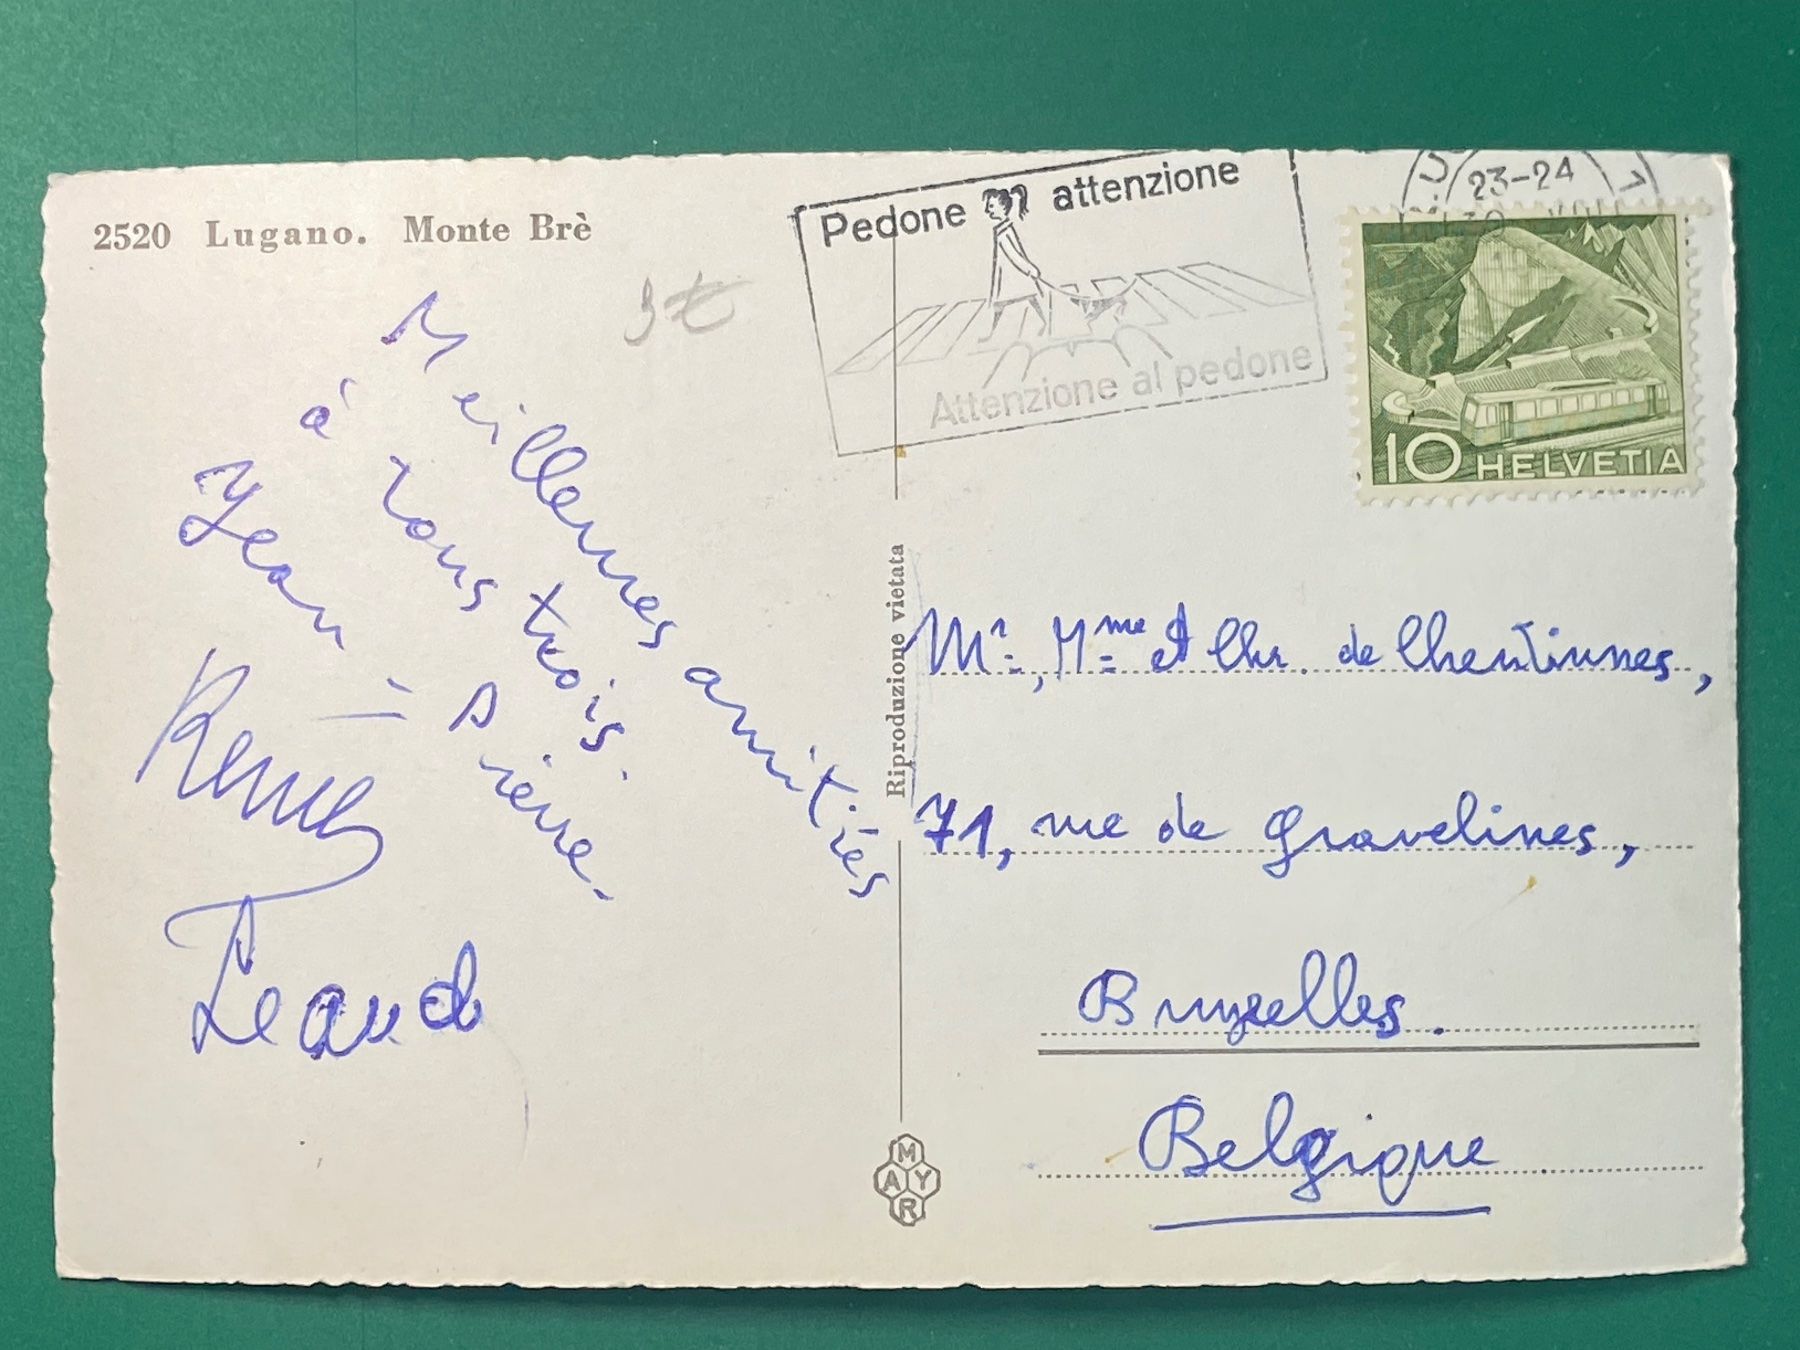 2520 Lugano. Monte Brè
3€
Meilleures amitiés
à tous trois.
Jean-Pierre.
Pedone attenzione
Attenzione al pedone
23-24
10 HELVETIA
Riproduzione vietata
Mr., Mme et Chr. de Lhentinnes,
71, rue de Gravelines,
Bruxelles.
Belgique
MAYR